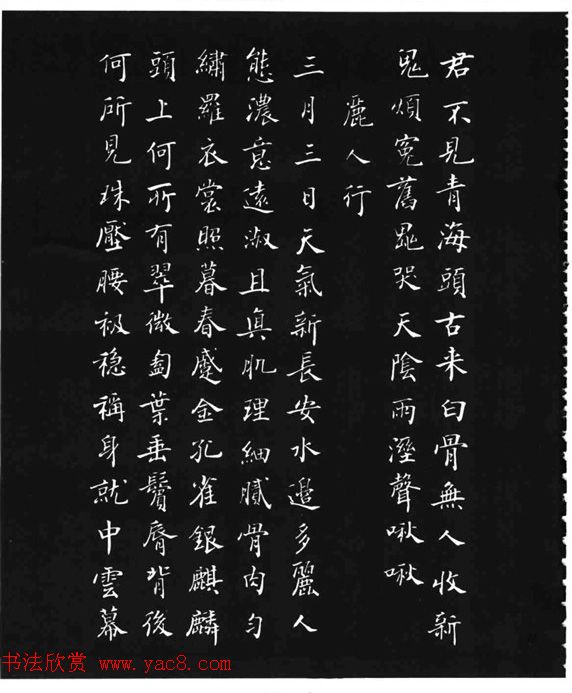 君不見青海頭古来白骨無人收新
鬼煩冤舊鬼哭天陰雨溼聲啾啾
麗人行
三月三日天氣新長安水邊多麗人
態濃意遠淑且真肌理細膩骨肉勻
繡羅衣裳照暮春蹙金孔雀銀麒麟
頭上何所有翠微㔩葉垂鬢脣背後
何所見珠壓腰衱稳稱身就中雲幕
书法欣赏 www.yac8.com